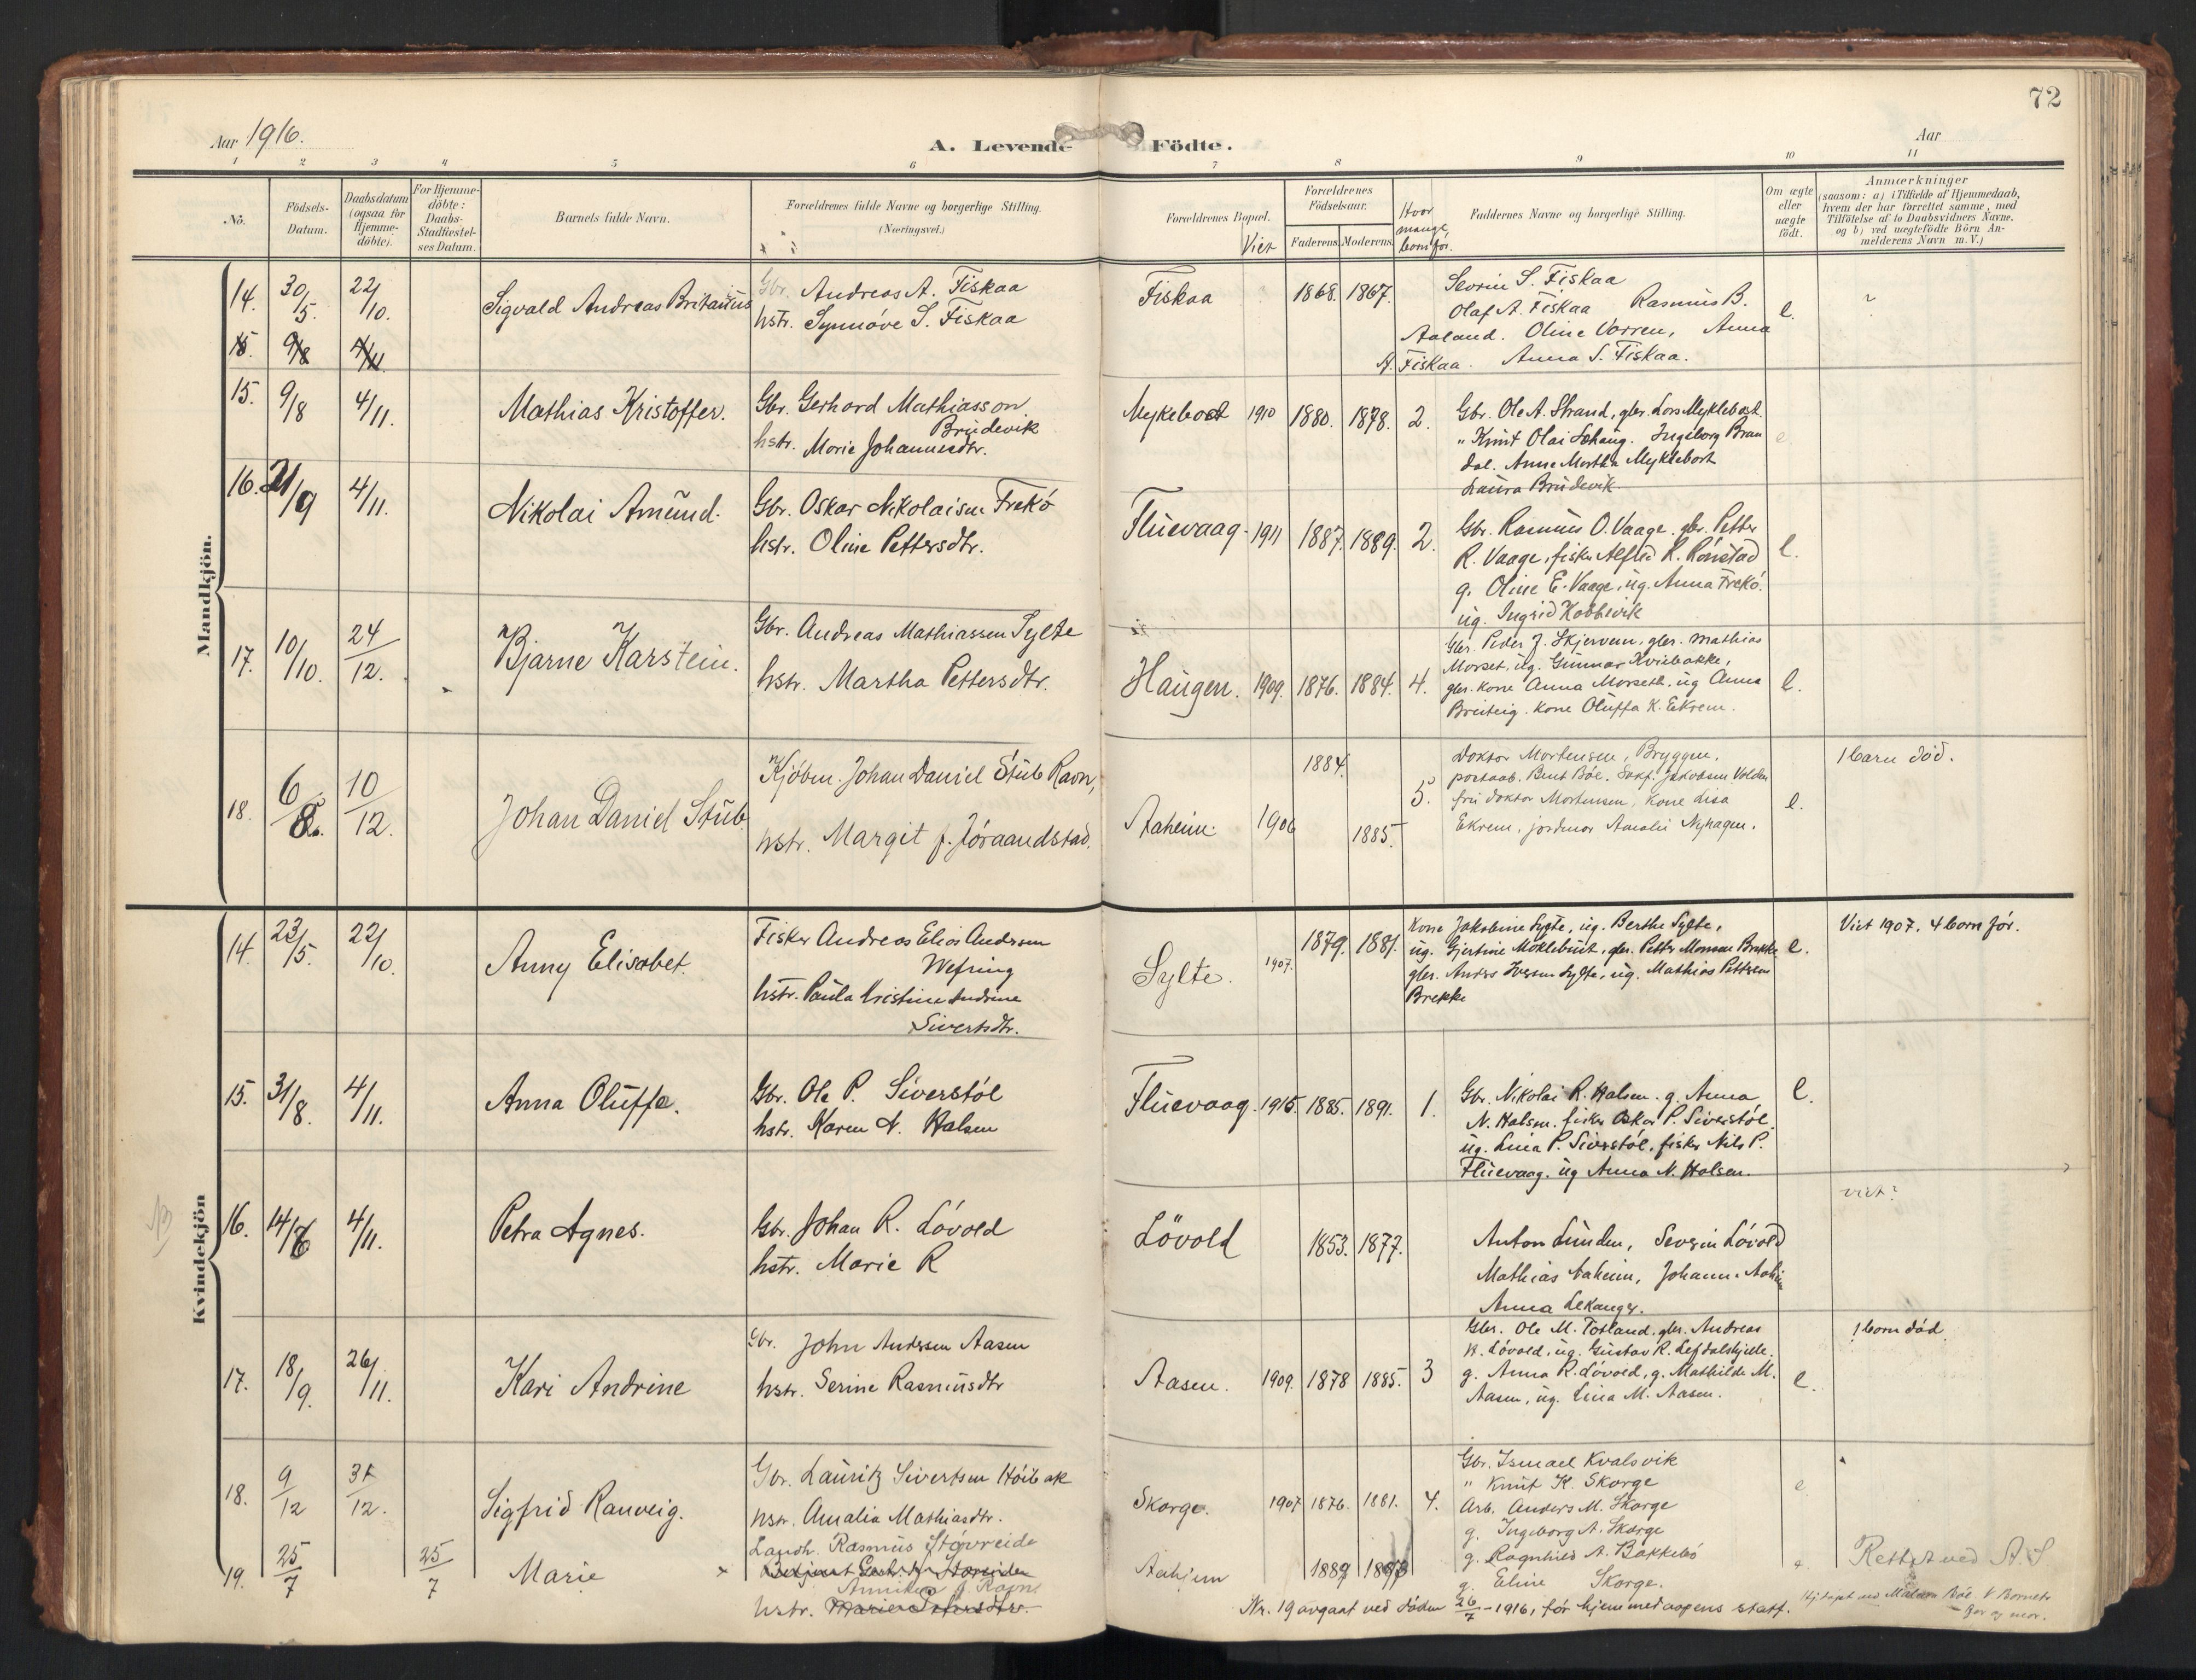 72
Aar 1916.
A. Levende Födte.
Aar
1 2 3 4 5 6 7 8 9 10 11
Nö.
Födsels-Datum.
Daabsdatum (ogsaa for Hjemme-döbte).
For Hjemme-döbte: Daabs-Stadfæstel-ses Datum.
Barnets fulde Navn.
Forældrenes fulde Navne og borgerlige Stilling.
(Næringsvei.)
Forældrenes Bopæl.
Viet
Forældrenes Födselsaar.
Faderens Moderens
Hvor mange born før.
Faddernes Navne og borgerlige Stilling.
Om ægte eller uægte födt.
Anmærkninger
(saasom: a) i Tilfælde af Hjemmedaab,
hvem der har forrettet samme, med
Tilföielse af to Daabsvidners Navne.
og b) ved uægtefödte Börn An-
melderens Navn m. V.)
Mandkjön.
14. 30/5. 22/10. Sigvald Andreas Gbr. Andreas A. Fiskaa
hstr. Synnöve S. Fiskaa
Fiskaa 1868. 1867. Sevrin S. Fiskaa
Olaf A. Fiskaa Rasmus B.
Aaland. Oline Vorren, Anna
A. Fiskaa. Anna S. Fiskaa.
e. ?
15. 9/8 4/11.
15. 9/8 4/11. Mathias Kristoffer. Gbr. Gerhard Mathiasson
Brudevik
hstr. Marie Johannesdtr.
Myklebost 1910 1880. 1878. 2. Gbr. Ole A. Strand, gbr. Lars Myklebost.
" Knut Olai Sæhaug. Ingeborg Bran
dal. Anne Martha Myklebost
Laura Brudevik
e.
16. 21/9 4/11. Nikolai Amund. Gbr. Oskar Nikolaisen Frekö
hstr. Oline Pettersdtr.
Fluevaag. 1911 1887. 1889. 2. Gbr. Rasmus O. Vaage. gbr. Petter
R. Vaage, fisker Alfred R. Rönstad
g. Oline E. Vaage, ug. Anna Frekö.
ug. Ingrid Hobbevik
e.
17. 10/10. 24/12. Bjarne Karstein. Gbr. Andreas Mathiassen Sylte
hstr. Martha Pettersdtr.
Haugen. 1909. 1876. 1884. 4. Gbr. Peder J. Skjerven, gbr. Mathias
Morset, ug. Gunnar Kviebakke,
gbr. kone Anna Morseth. ug Anna
Breiteig. kone Oluffa K. Ekrem.
e.
18. 6/8. 10/12. Johan Daniel Stub Kjöbm. Johan Daniel Stub Ravn,
hstr. Margit f. Jöraandstad.
Aaheim. 1906 1884. 1885. 5. Doktor Mortensen, Bryggen,
postaab. Bent Böe. Sakf. Jakobsen Volden
fru doktor Mortensen, kone Lisa
Ekrem, jordmor Amalie Nyhagen.
e. 1 barn död.
Kvindekjön
14. 23/5. 22/10. Anny Elisabet. Fisker Andreas Elias Andersen
Wefring
hstr. Paula Kristine Andrine
Sivertsdtr.
Sylte. 1907. 1879. 1881. Kone Jakobine Sylte, ug. Berthe Sylte,
ug. Gjertine Moklebust, gbr. Petter Monsen Brekke
gbr. Anders Iversen Sylte, ug. Mathias Pettersen
Brekke
e. Viet 1907. 4 born för.
15. 31/8. 4/11. Anna Oluffe. Gbr. Ole P. Siverstöl
hstr. Karen N. Halsen
Fluevaag. 1915. 1885. 1891. 1. Gbr. Nikolai R. Halsen. g. Anna
N. Halsen. fisker Oskar P. Siverstöl.
ug. Lina P. Siverstöl, fisker Nils P.
Fluevaag. ug Anna N. Halsen.
e.
16. 14/6 4/11. Petra Agnes. Gbr. Johan R. Lövold
hstr. Marie R
Lövold 1853. 1877. Anton Lunden, Severin Lövold
Mathias Aaheim, Johann. Aaheim
Anna Lekanger.
viet?
17. 18/9. 26/11. Kari Andrine Gbr. John Andersen Aasen
hstr. Serine Rasmusdtr
Aasen. 1909. 1878 1885. 3 Gbr. Ole M. Totland, gbr. Andreas
R. Lövold, ug. Gustav R. Lefdalskjelle.
g. Anna R. Lövold, g. Mathilde M.
Aasen, ug. Lina M. Aasen.
e. 1 born död.
18. 9/12 31/12. Sigfrid Ranveig. Gbr. Lauritz Sivertsen Höibak
hstr. Amalia Mathiasdtr.
Skorge. 1907 1876. 1881. 4. Gbr. Ismael Kvalsvik
" Knut K. Skorge
Arb. Anders M. Skorge
g. Ingeborg A. Skorge
g. Ragnhild A. Bakkebö
g. Eline Skorge.
e
19. 25/7 25/7 Marie Landh. Rasmus Störeide
Anniken f. Ravn
hstr.
Aahjem 1889
Rettet ved A. S
Nr. 19 avgaat ved döden 26/7 - 1916, før hjemmedaapens stadf.